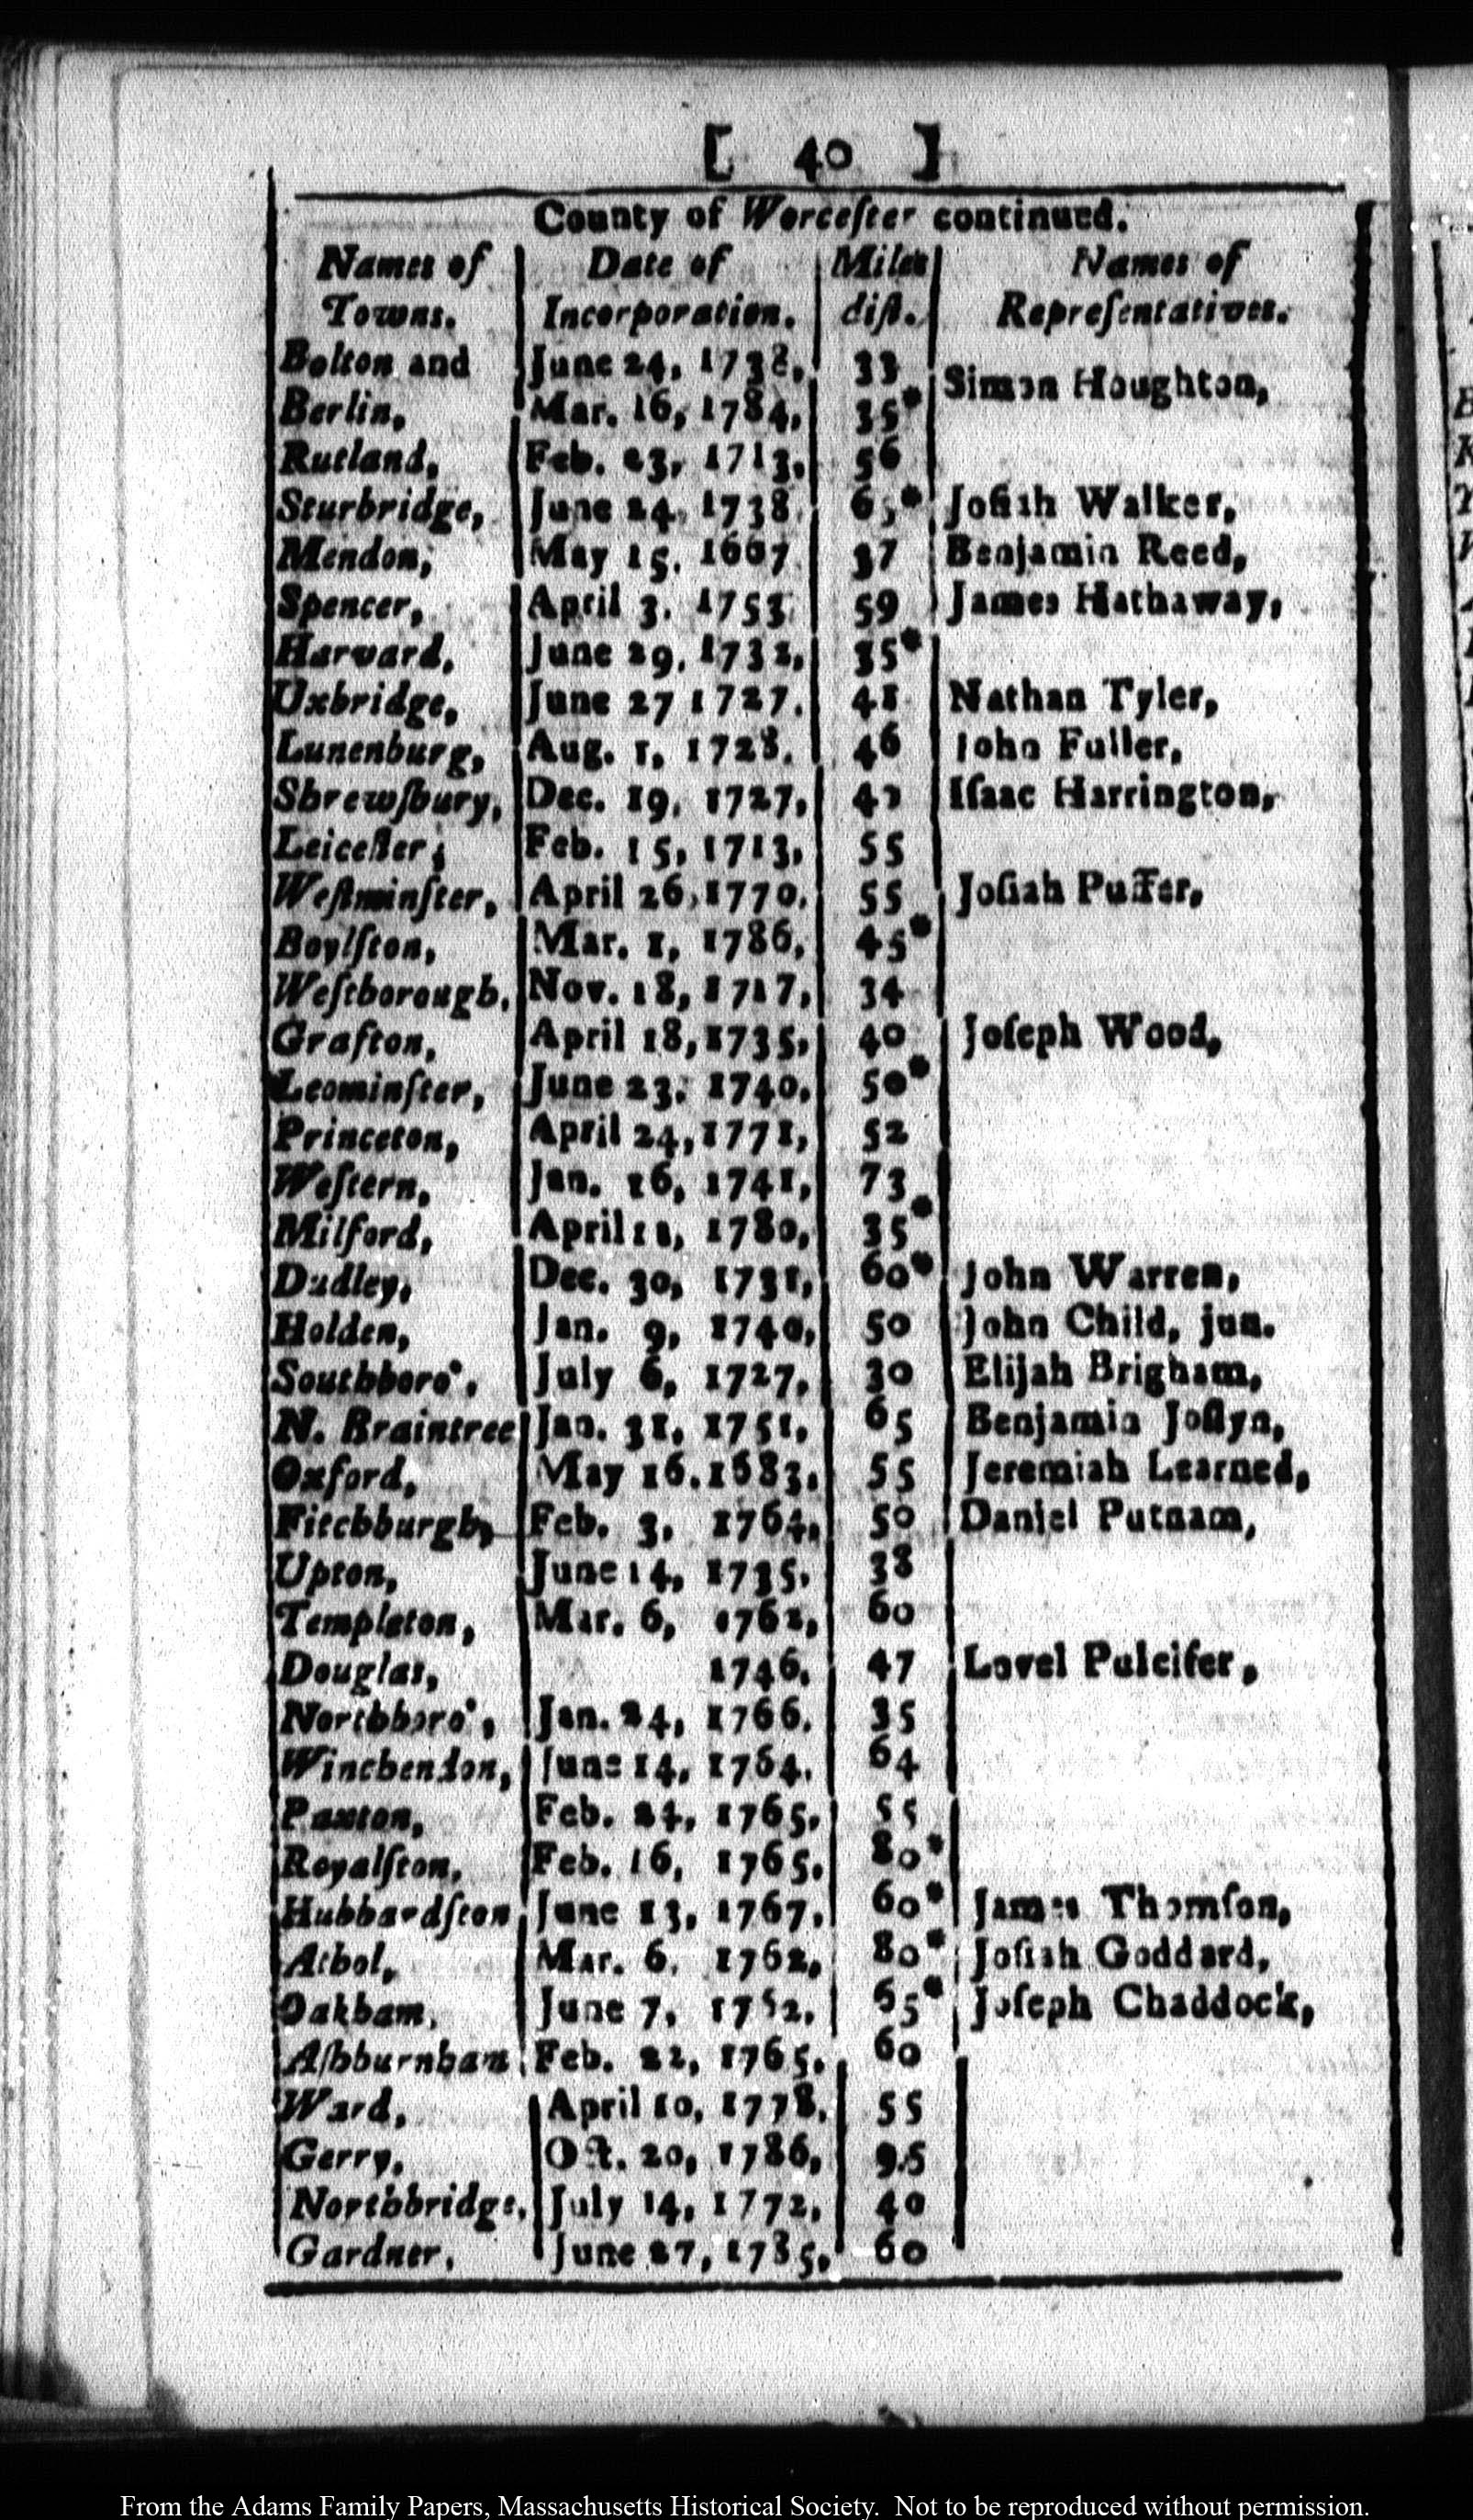 [ 40 ]
County of Worceſter continued.
Names of Date of Miles Names of
Towns. Incorporation. diſt. Repreſentatives.
Bolton and June 24, 1738, 33
Simon Houghton,
Berlin, Mar. 16, 1784, 35*
Rutland, Feb. 23, 1713, 56
Sturbridge, June 24, 1738 65* Joſiah Walker,
Mendon, May 15. 1667 37 Benjamin Reed,
Spencer, April 3. 1753 59 James Hathaway,
Harvard, June 29, 1732, 35*
Uxbridge, June 27 1727. 41 Nathan Tyler,
Lunenburg, Aug. 1, 1728. 46 John Fuller,
Shrewſbury, Dec. 19, 1727, Iſaac Harrington,
Leiceſter; Feb. 15, 1713, 55
Weſtminſter, April 26, 1770. 55 Joſiah Puffer,
Boylſton, Mar. 1, 1786, 45*
Weſtborough, Nov. 18, 1717, 34
Grafton, April 18, 1735, 40 Joſeph Wood,
Leominſter, June 23, 1740, 50*
Princeton, April 24, 1771, 52
Weſtern, Jan. 16, 1741, 73
Milford, April 11, 1780, 35*
Dudley, Dec. 30, 1731, 60* John Warren,
Holden, Jan. 9, 1740, 50 John Child, jun.
Southboro', July 6, 1727, 30 Elijah Brigham,
N. Braintree Jan. 31, 1751, 65 Benjamin Joſlyn,
Oxford, May 16. 1683, 55 Jeremiah Learned,
Fitchburgh, Feb. 3, 1764, 50 Daniel Putnam,
Upton, June 14, 1735. 38
Templeton, Mar. 6, 1762, 60
Douglas, 1746, 47 Lovel Pulcifer,
Northboro', Jan. 24, 1766. 35
Winchendon, June 14, 1764. 64
Paxton, Feb. 24, 1765, 55
Royalſton, Feb. 16, 1765. 80*
Hubbardſton June 13, 1767, 60* James Thomſon,
Athol, Mar. 6, 1762, 80* Joſiah Goddard,
Oakham, June 7, 65* Joſeph Chaddock,
Aſhburnham Feb. 22, 1765, 60
Ward, April 10, 1778, 55
Gerry, Oct. 20, 1786, 9.5
Northbridge, July 14, 1772, 40
Gardner, June 27, 1785, 60
From the Adams Family Papers, Massachusetts Historical Society. Not to be reproduced without permission.